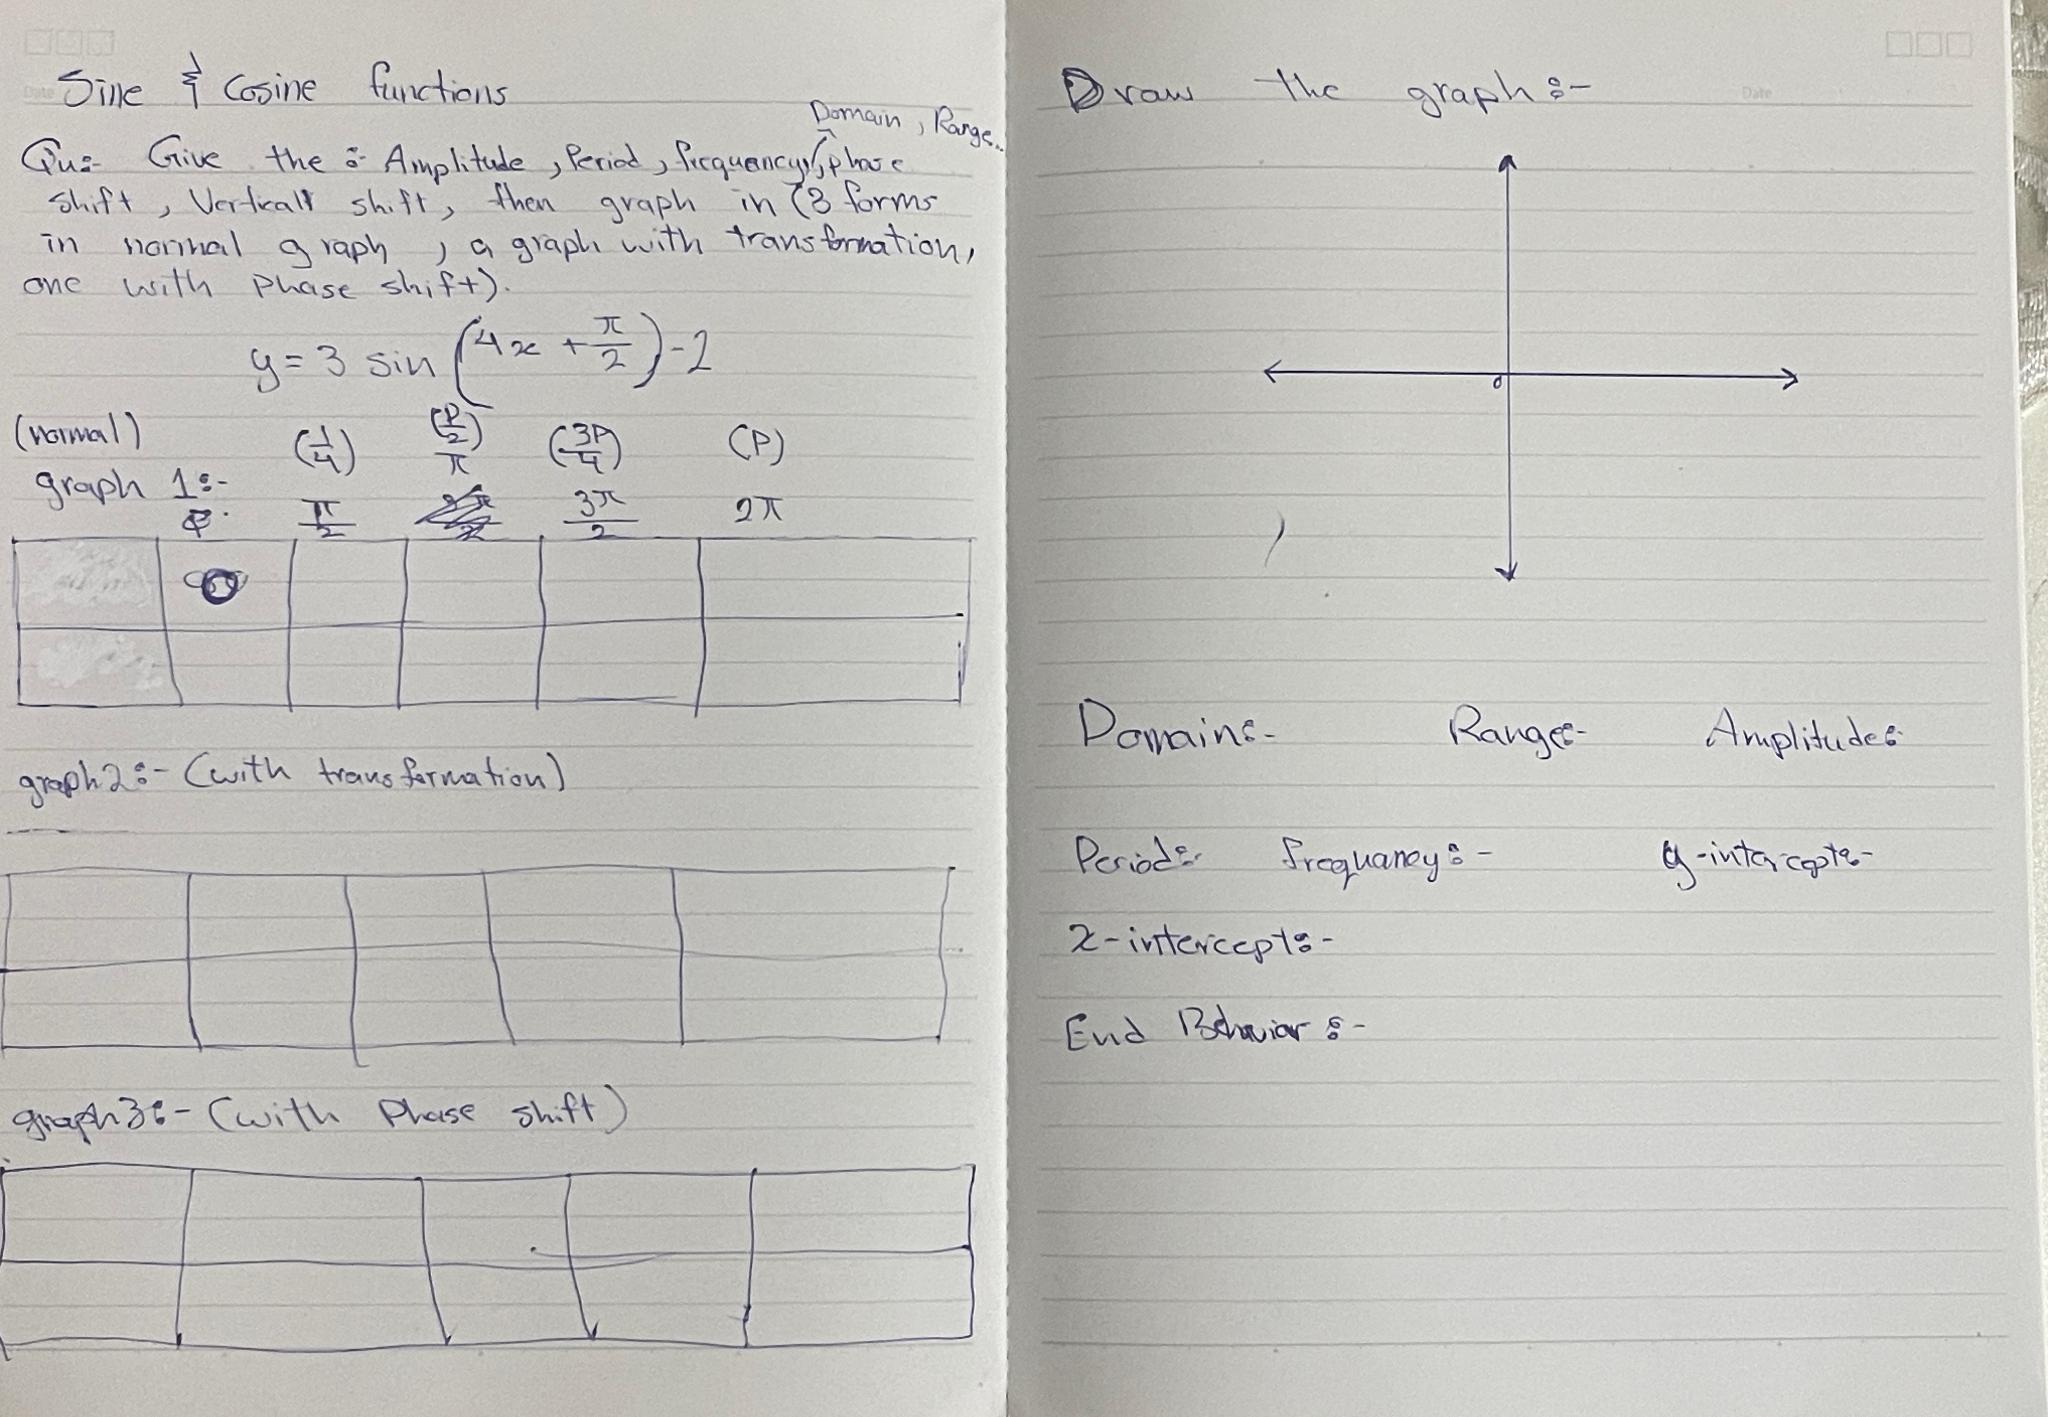 Sine & Cosine functions
Domain, Range..
Qu:- Give the :- Amplitude, Period, frequency, phase
shift, Verticall shift, then graph in (3 forms
in normal graph, a graph with transformation,
one with Phase shift).
y = 3 sin (4x + π/2) - 2
(normal) (1/4) (P/2) (3P/4) (P)
graph 1:- π/2 π 3π/2 2π
0
graph 2:- (with transformation)
graph 3:- (with Phase shift)
Draw the graph:-
0
Domain:- Range:- Amplitude:
Period:- frequaney:- y-intercept:-
x-intercept:-
End Behavior:-